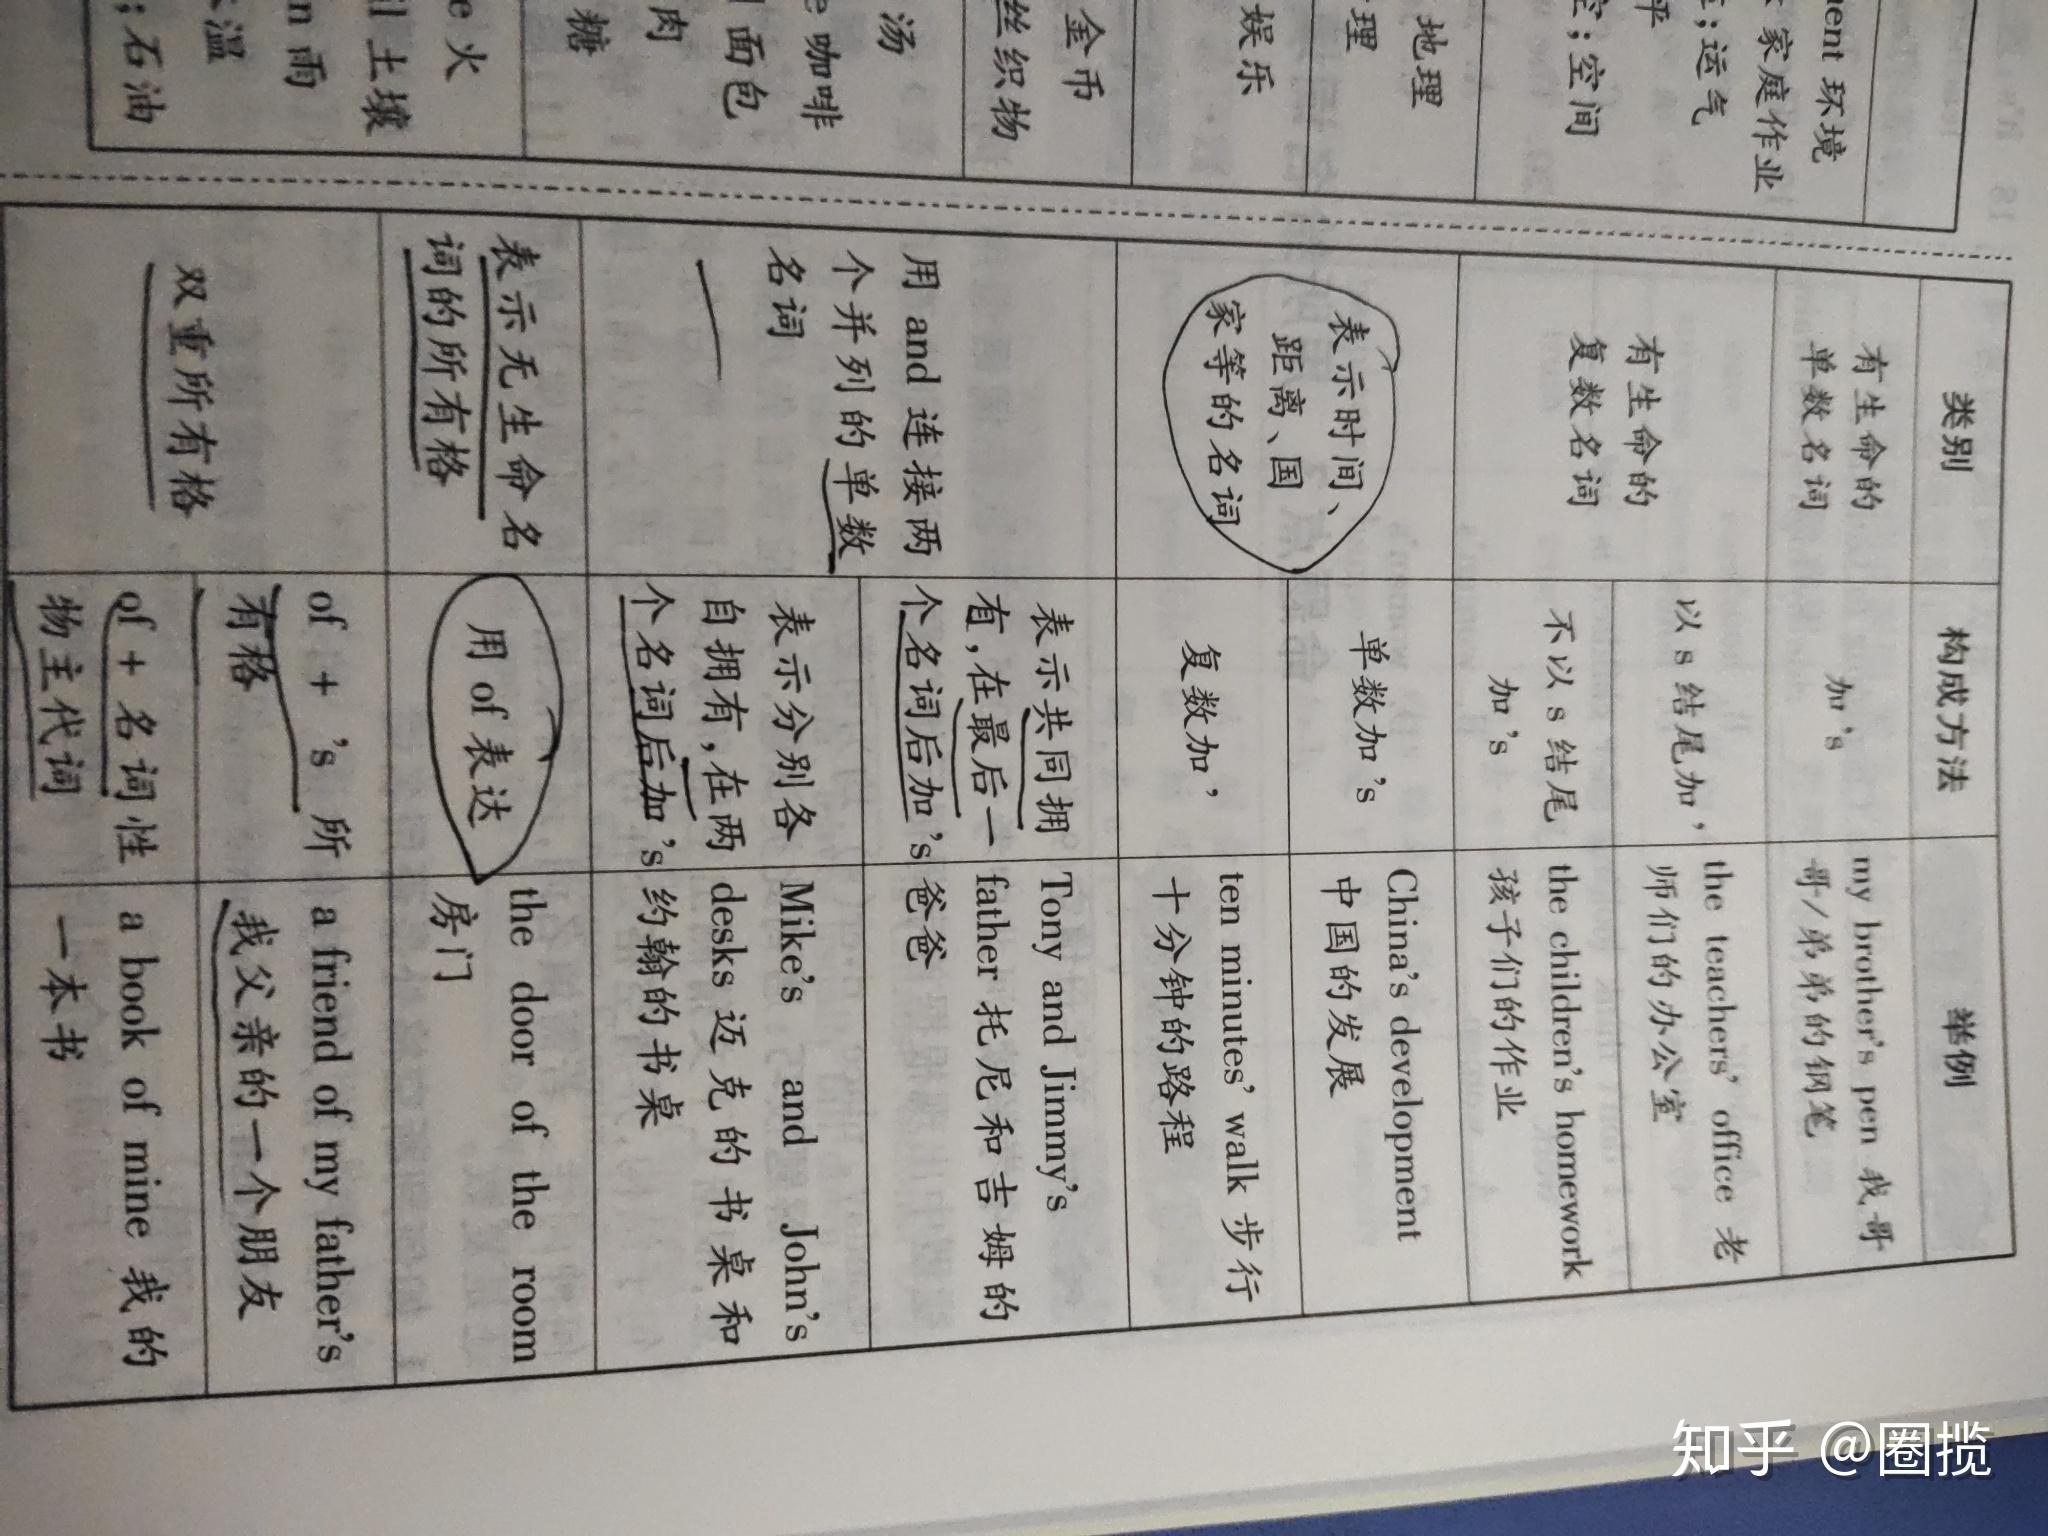 ment 环境
家庭作业
；运气
平
空；空间
地理
理
娱乐
金币
丝织物
汤
咖啡
面包
肉
糖
火
il 土壤
n 雨
温
；石油
类别
构成方法
举例
有生命的
单数名词
加’s
my brother’s pen 我哥
哥/弟弟的钢笔
有生命的
复数名词
以 s 结尾加’
the teachers’ office 老
师们的办公室
不以 s 结尾
加’s
the children’s homework
孩子们的作业
表示时间、
距离、国
家等的名词
单数加’s
China’s development
中国的发展
复数加’
ten minutes’ walk 步行
十分钟的路程
用 and 连接两
个并列的单数
名词
表示共同拥
有,在最后一
个名词后加’s
Tony and Jimmy’s
father 托尼和吉姆的
爸爸
表示分别各
自拥有,在两
个名词后加’s
Mike’s and John’s
desks 迈克的书桌和
约翰的书桌
表示无生命名
词的所有格
用 of 表达
the door of the room
房门
双重所有格
of + ’s 所
有格
a friend of my father’s
我父亲的一个朋友
of + 名词性
物主代词
a book of mine 我的
一本书
知乎 @圈揽